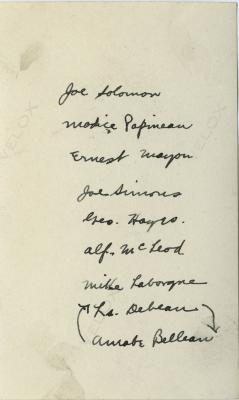 Joe Solomon
Modice Papineau
Ernest Mayou
Joe Simons
Geo. Hayes.
Alf. McLeod
Mike Laborgne
La. Debeau
Amabe Belleau
VELOX